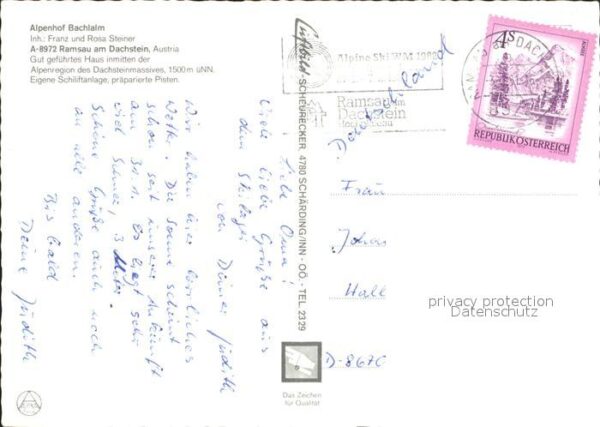 Alpenhof Bachlalm
Inh.: Franz und Rosa Steiner
A-8972 Ramsau am Dachstein, Austria
Gut geführtes Haus inmitten der
Alpenregion des Dachsteinmassives, 1500m üNN.
Eigene Schiliftanlage, präparierte Pisten.
Liebe Oma!
Viele liebe Grüße aus
dem Skilager
von Deiner Judith
Wir haben hier herrliches
Wetter. Die Sonne scheint
schon seit unserer Ankunft
am 30.1. Es liegt sehr
viel Schnee, 3 Meter.
Schöne Grüße auch noch
an alle anderen.
Bis bald
Deine Judith
Luftbild-SCHEURECKER, 4780 SCHÄRDING/INN - OÖ. - TEL. 2329
Das Zeichen
für Qualität
Alpine Ski WM 1982
Ramsau am
Dachstein
4S
REPUBLIK ÖSTERREICH
Deutschland
Frau
Hall
D-8670
privacy protection
Datenschutz